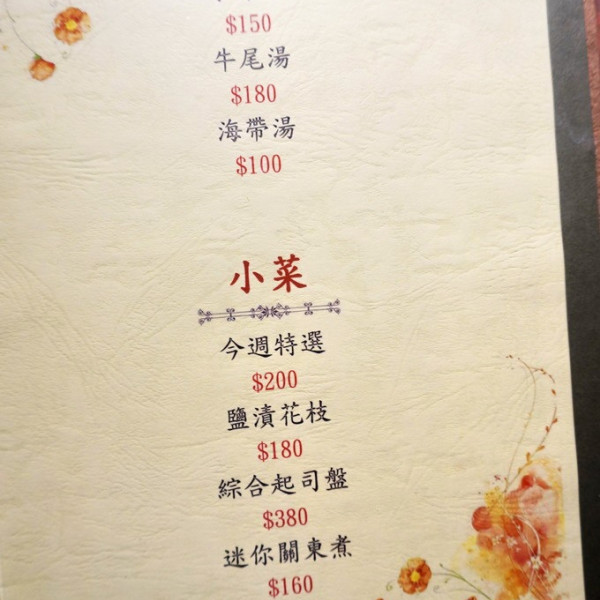 $150
牛尾湯
$180
海帶湯
$100
小菜
今週特選
$200
鹽漬花枝
$180
綜合起司盤
$380
迷你關東煮
$160